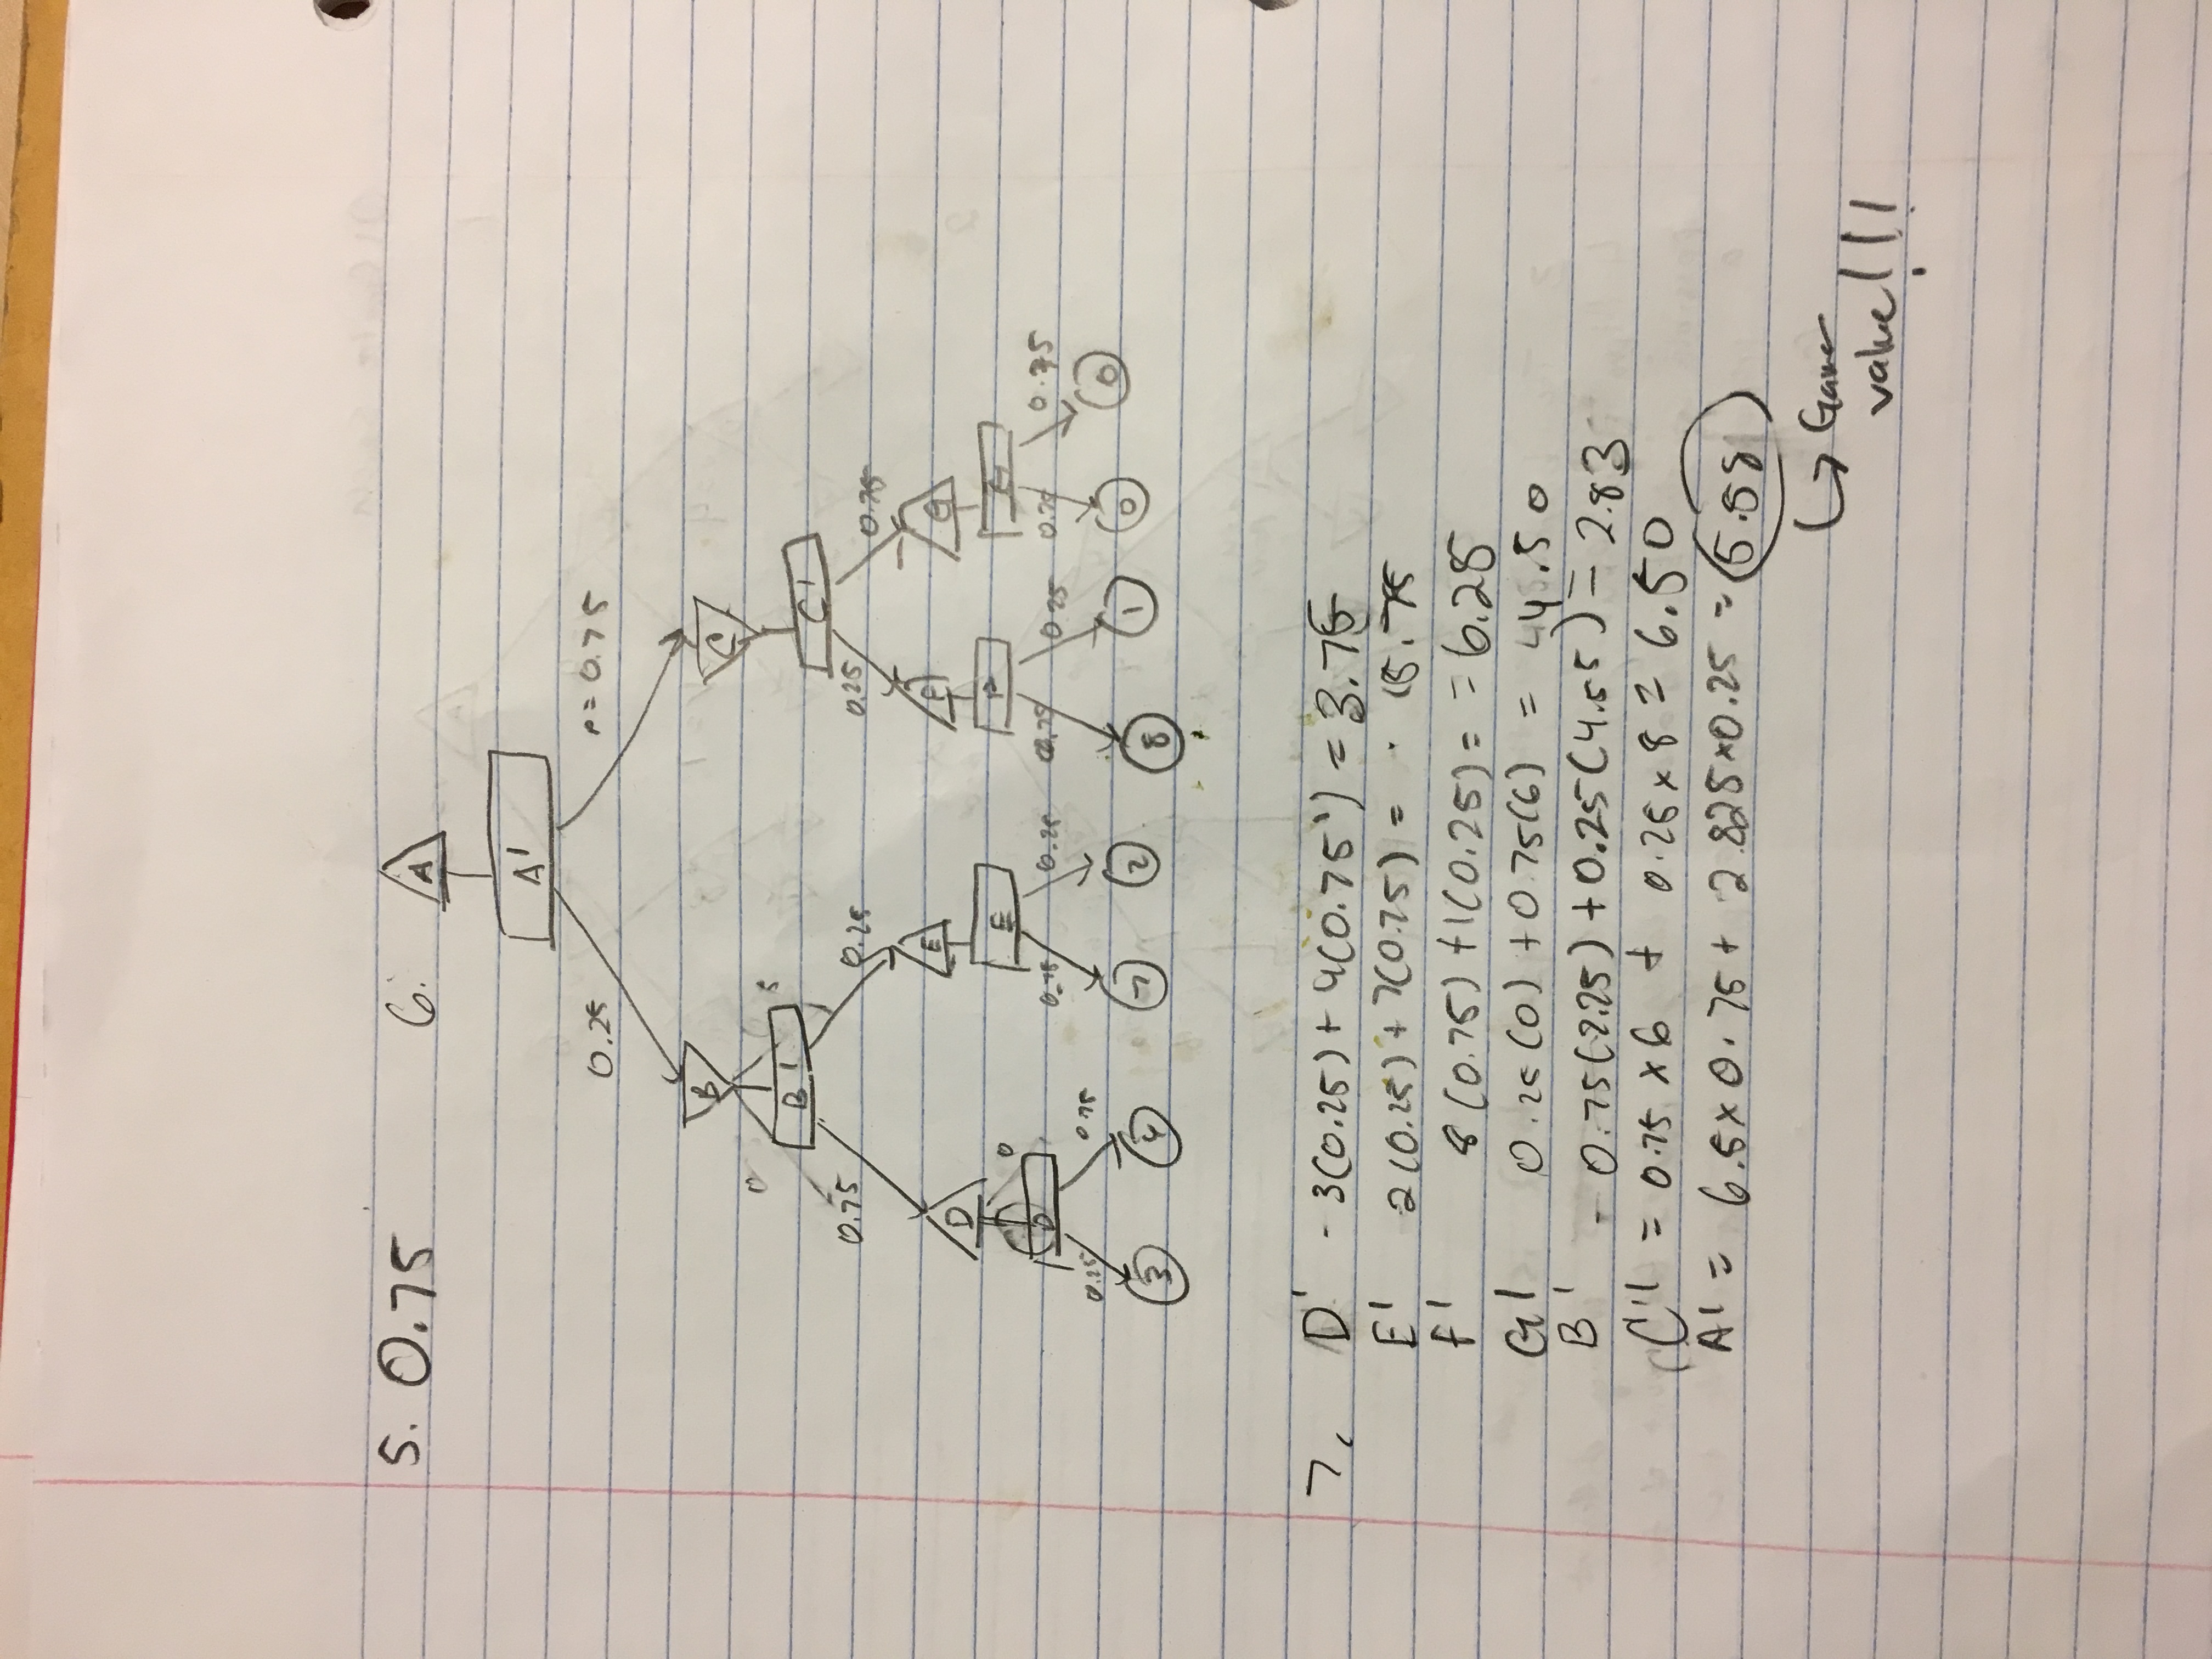 5. 0.75 6.
A
A'
0.25 p = 0.75
B C
0 5
B' C'
0.75 0.25 0.25 0.75
D E F G
0
D E F G
0.25 0.75 0.75 0.25 0.75 0.25 0.25 0.75
3 4 7 2 8 1 0 6
7. D' - 3(0.25) + 4(0.75) = 3.75
E' 2(0.25) + 7(0.75) = 5.75
F' 8(0.75) + 1(0.25) = = 6.25
G' 0.25(0) + 0.75(6) = 4.50
B' - 0.75(2.25) + 0.25(4.55) = 2.83
C' = 0.75 x 6 + 0.25 x 8 = 6.50
A' = 6.5 x 0.75 + 2.825 x 0.25 = 5.58
Game
value!!!